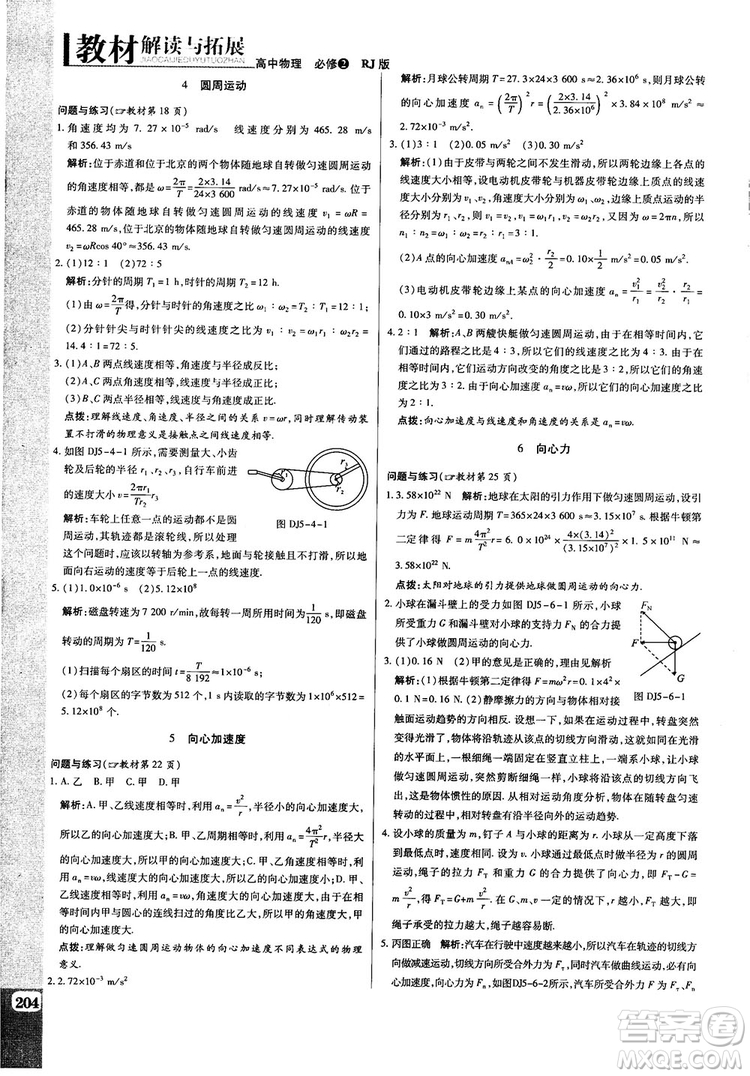 教材解读与拓展
JIAOCAIJIEDUYUTUOZHAN
高中物理 必修❷ RJ版
4 圆周运动
问题与练习(☞教材第18页)
1. 角速度均为 7.27×10⁻⁵ rad/s 线速度分别为 465.28 m/s
和 356.43 m/s
解析:位于赤道和位于北京的两个物体随地球自转做匀速圆周运动
的角速度相等,都是 ω=2π/T=2×3.14/(24×3 600) rad/s=7.27×10⁻⁵ rad/s. 位于
赤道的物体随地球自转做匀速圆周运动的线速度 v₁=ωR=
465.28 m/s,位于北京的物体随地球自转做匀速圆周运动的线速度
v₂=ωRcos 40°=356.43 m/s.
2. (1)12∶1 (2)72∶5
解析:分针的周期为 T₁=1 h,时针的周期为 T₂=12 h.
(1)由 ω=2π/T得,分针与时针的角速度之比 ω₁∶ω₂=T₂∶T₁=12∶1.
(2)分针针尖与时针针尖的线速度之比为 v₁∶v₂=ω₁r₁∶ω₂r₂=
14.4∶1=72∶5.
3. (1)A、B 两点线速度相等,角速度与半径成反比.
(2)A、C 两点角速度相等,线速度与半径成正比.
(3)B、C 两点半径相等,线速度与角速度成正比.
点拨:理解线速度、角速度、半径之间的关系 v=ωr,同时理解传动装
置不打滑的物理意义是接触点之间线速度相等.
4. 如图 DJ5-4-1 所示,需要测量大、小齿
轮及后轮的半径 r₁、r₂、r₃,自行车前进
的速度大小 v=2πr₁/(Tr₂) r₃.
r₁
r₃
r₂
图 DJ5-4-1
解析:车轮上任意一点的运动都不是圆周
运动,其轨迹都是滚轮线,所以在处理
这个问题时,应该以轮轴为参考系,地面与轮接触而不打滑,所以地
面向右运动的速度等于后轮上一点的线速度.
5. (1)1.0×10⁻⁶ s (2)5.12×10⁸
解析:磁盘转速为 7 200 r/min,故每转一周所用时间为 1/120 s,即磁盘
转动的周期为 T=1/120 s.
(1)扫描每个扇区的时间 t=T/8 192=1×10⁻⁶ s.
(2)每个扇区的字节数为 512 个,1 s 内读取的字节数为 1×10⁶×512=
5.12×10⁸ 个.
5 向心加速度
问题与练习(☞教材第22页)
1. A. 乙 B. 甲 C. 甲 D. 甲
解析:A. 甲、乙线速度相等时,利用 aₙ=v²/r,半径小的向心加速度大,
所以乙的向心加速度大. B. 甲、乙周期相等时,利用 aₙ=4π²/T² r,半径大
的向心加速度大,所以甲的向心加速度大. C. 甲、乙角速度相等时,
利用 aₙ=vω,线速度大的向心加速度大,所以甲的向心加速度大. D. 甲、
乙线速度相等时,利用 aₙ=vω,角速度大的向心加速度大.由于在相等时间内
甲与圆心的连线扫过的角度比乙大,所以甲的角速度大,甲的向心
加速度大.
点拨:理解做匀速圆周运动物体的向心加速度在不同表达式下的物理
意义.
2. 2.72×10⁻³ m/s²
204
解析:月球公转周期 T=27.3×24×3 600 s=2.36×10⁶ s. 月球公转
的向心加速度 aₙ=(2π/T)² r=(2×3.14/(2.36×10⁶))²×3.84×10⁸ m/s²=
2.72×10⁻³ m/s².
3. (1)3∶1 (2)0.05 m/s² (3)0.30 m/s²
解析:(1)由于皮带与两轮之间不发生滑动,故两轮边缘上各点的线
速度大小相等,设电动机皮带轮与机器皮带轮边缘上质点的线速
度大小分别为 v₁、v₂,角速度大小分别为 ω₁、ω₂,两轮边缘上质点运动的半
径分别为 r₁、r₂,则 v₁=v₂,v₁=ω₁r₁,v₂=ω₂r₂,又 ω=2πn,所以
n₁∶n₂=ω₁∶ω₂=r₂∶r₁=3∶1.
(2)A 点的向心加速度 aₙA=ω₂²·r₂/2=0.05 m/s².
(3)电动机皮带轮边缘上某点的向心加速度 aₙ=v₁²/r₁=v₂²/r₂·r₂/r₁=
0.10×3 m/s²=0.30 m/s².
4. 2∶1 解析:A、B 两艘快艇做匀速圆周运动,由于在相等时间内它
们通过的路程之比是 4∶3,所以它们的线速度之比为 4∶3;由于它
们在相等时间内运动方向改变的角度之比是 3∶2,所以它们的角速
度之比为 3∶2. 由于向心加速度 aₙ=vω,所以它们的向心加速度之
比为 2∶1.
点拨:向心加速度与线速度和角速度的关系为 aₙ=vω.
6 向心力
问题与练习(☞教材第25页)
1. 3.58×10²² N 解析:地球在太阳的引力作用下做匀速圆周运动,设引
力为 F. 地球运动周期为 T=365×24×3 600 s=3.15×10⁷ s. 根据牛顿第
二定律得 F=m 4π²/T² r=6.0×10²⁴×4×(3.14)²/(3.15×10⁷)²×1.5×10¹¹ N=
3.58×10²² N.
点拨:太阳对地球的引力提供地球做圆周运动的向心力.
2. 小球在漏斗壁上的受力如图 DJ5-6-1 所示.
小球所受重力 G、漏斗壁对小球的支持力 Fₙ的合力
提供了小球做圆周运动的向心力.
Fₙ
F
G
图 DJ5-6-1
3. (1)0.16 N (2)甲的意见是正确的
解析:(1)根据牛顿第二定律得 F=mω²r=0.10×
4²×0.1 N=0.16 N. (2)静摩擦力的方向与物体相对
接触面运动趋势的方向相反.在运动过程中,转盘突然
变得光滑了,物体将沿轨迹切线方向滑动.就如在光滑
的水平面上,一根细绳一端固定在竖直立柱上,一端系一小球,让小球
做匀速圆周运动,突然剪断细绳一样,小球将沿该点的切线方向飞
出,这是由物体惯性的性质决定的.说明物体在随转盘匀速
转动的过程中,相对转盘有沿半径向外的运动趋势.
4. 设小球的质量为 m,钉子 A 与小球的距离为 r. 小球从一定高度处
下落,当小球通过最低点时做半径为 r 的圆周
运动,绳子的拉力 Fᴛ 和小球重力 G 的合力提供小球做圆周运动的向心
力,即 Fᴛ−G=mv²/r,Fᴛ=G+mv²/r. 在 G、m、v 一定的情况下,r 越小,Fᴛ 越大,即
绳子承受的拉力越大,绳子越容易断.
5. 丙图正确 解析:汽车在行驶中速度越来越小,所以汽车在轨迹的切线方
向做减速运动,切线方向所受合外力方向如图 Fₜ 所示;
同时汽车做曲线运动,必有向心加速度,向心力如图 Fₙ 所示. 汽车所受合外力 F 为 Fₜ、Fₙ 的合力,如图DJ5-6-2
答案圈
MXQE.COM